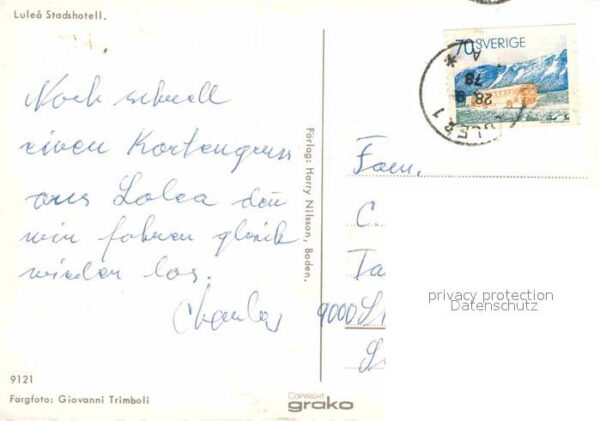 Luleå Stadshotell.
70 SVERIGE
28 9 78
Noch schnell
einen Kartengruss
aus Lulea denn
wir fahren gleich
wieder los.
Charles
Förlag: Harry Nilsson, Boden.
Fam.
C.
Ta
9000 S
privacy protection
Datenschutz
9121
Färgfoto: Giovanni Trimboli
Copyright
grako